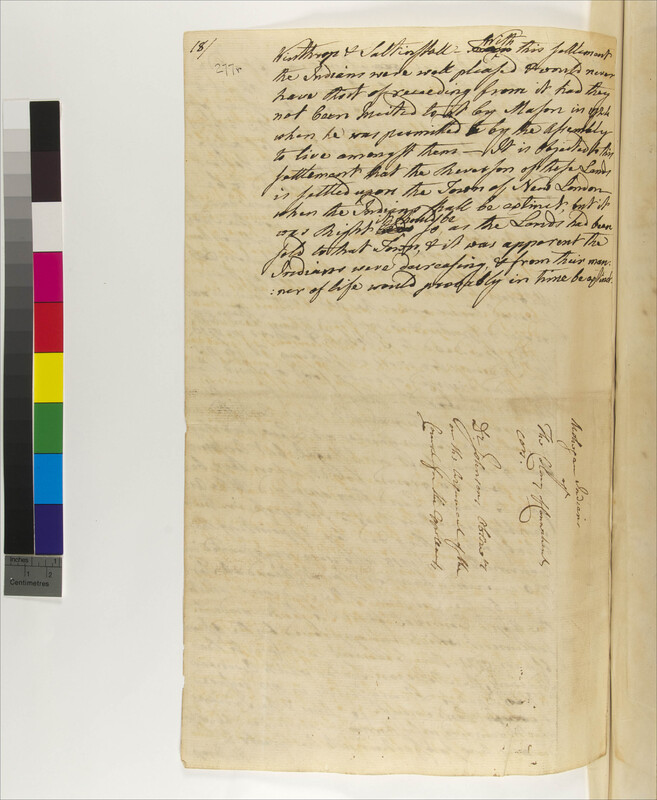 18/
277v
Winthrop & Saltinstall - With this settlement
the Indians were well pleased & would never
have thot of receeding from it had they
not been incited to it by Mason in
when he was permitted by the Assembly
to live amongst them - It is objected to this
settlement that the Reversion of these Lands
is settled upon the Town of New London
when the Indians shall be extinct, but it
was right it should be so as the Lands had been
sold to that Town, & it was apparent the
Indians were decreasing, & from their man-
:ner of life would probably in time be extinct.
Mohegan Indians
The Govr &
Dr Johnson's
on the Argument of the
Council for the
Inches
1
1
2
Centimetres